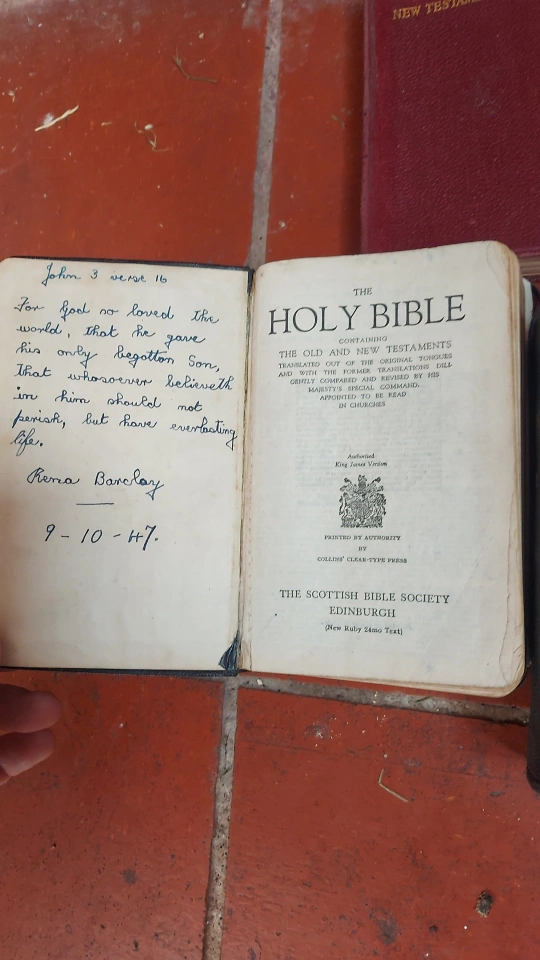 NEW TESTAM
John 3 verse 16
For God so loved the
world, that he gave
his only begotton Son,
that whosoever believeth
in him should not
perish, but have everlasting
life.
Rena Barclay
9-10-47.
THE
HOLY BIBLE
CONTAINING
THE OLD AND NEW TESTAMENTS
TRANSLATED OUT OF THE ORIGINAL TONGUES
AND WITH THE FORMER TRANSLATIONS DILI-
GENTLY COMPARED AND REVISED BY HIS
MAJESTY'S SPECIAL COMMAND.
APPOINTED TO BE READ
IN CHURCHES
Authorised
King James Version
PRINTED BY AUTHORITY
BY
COLLINS' CLEAR-TYPE PRESS
THE SCOTTISH BIBLE SOCIETY
EDINBURGH
(New Ruby 24mo Text)